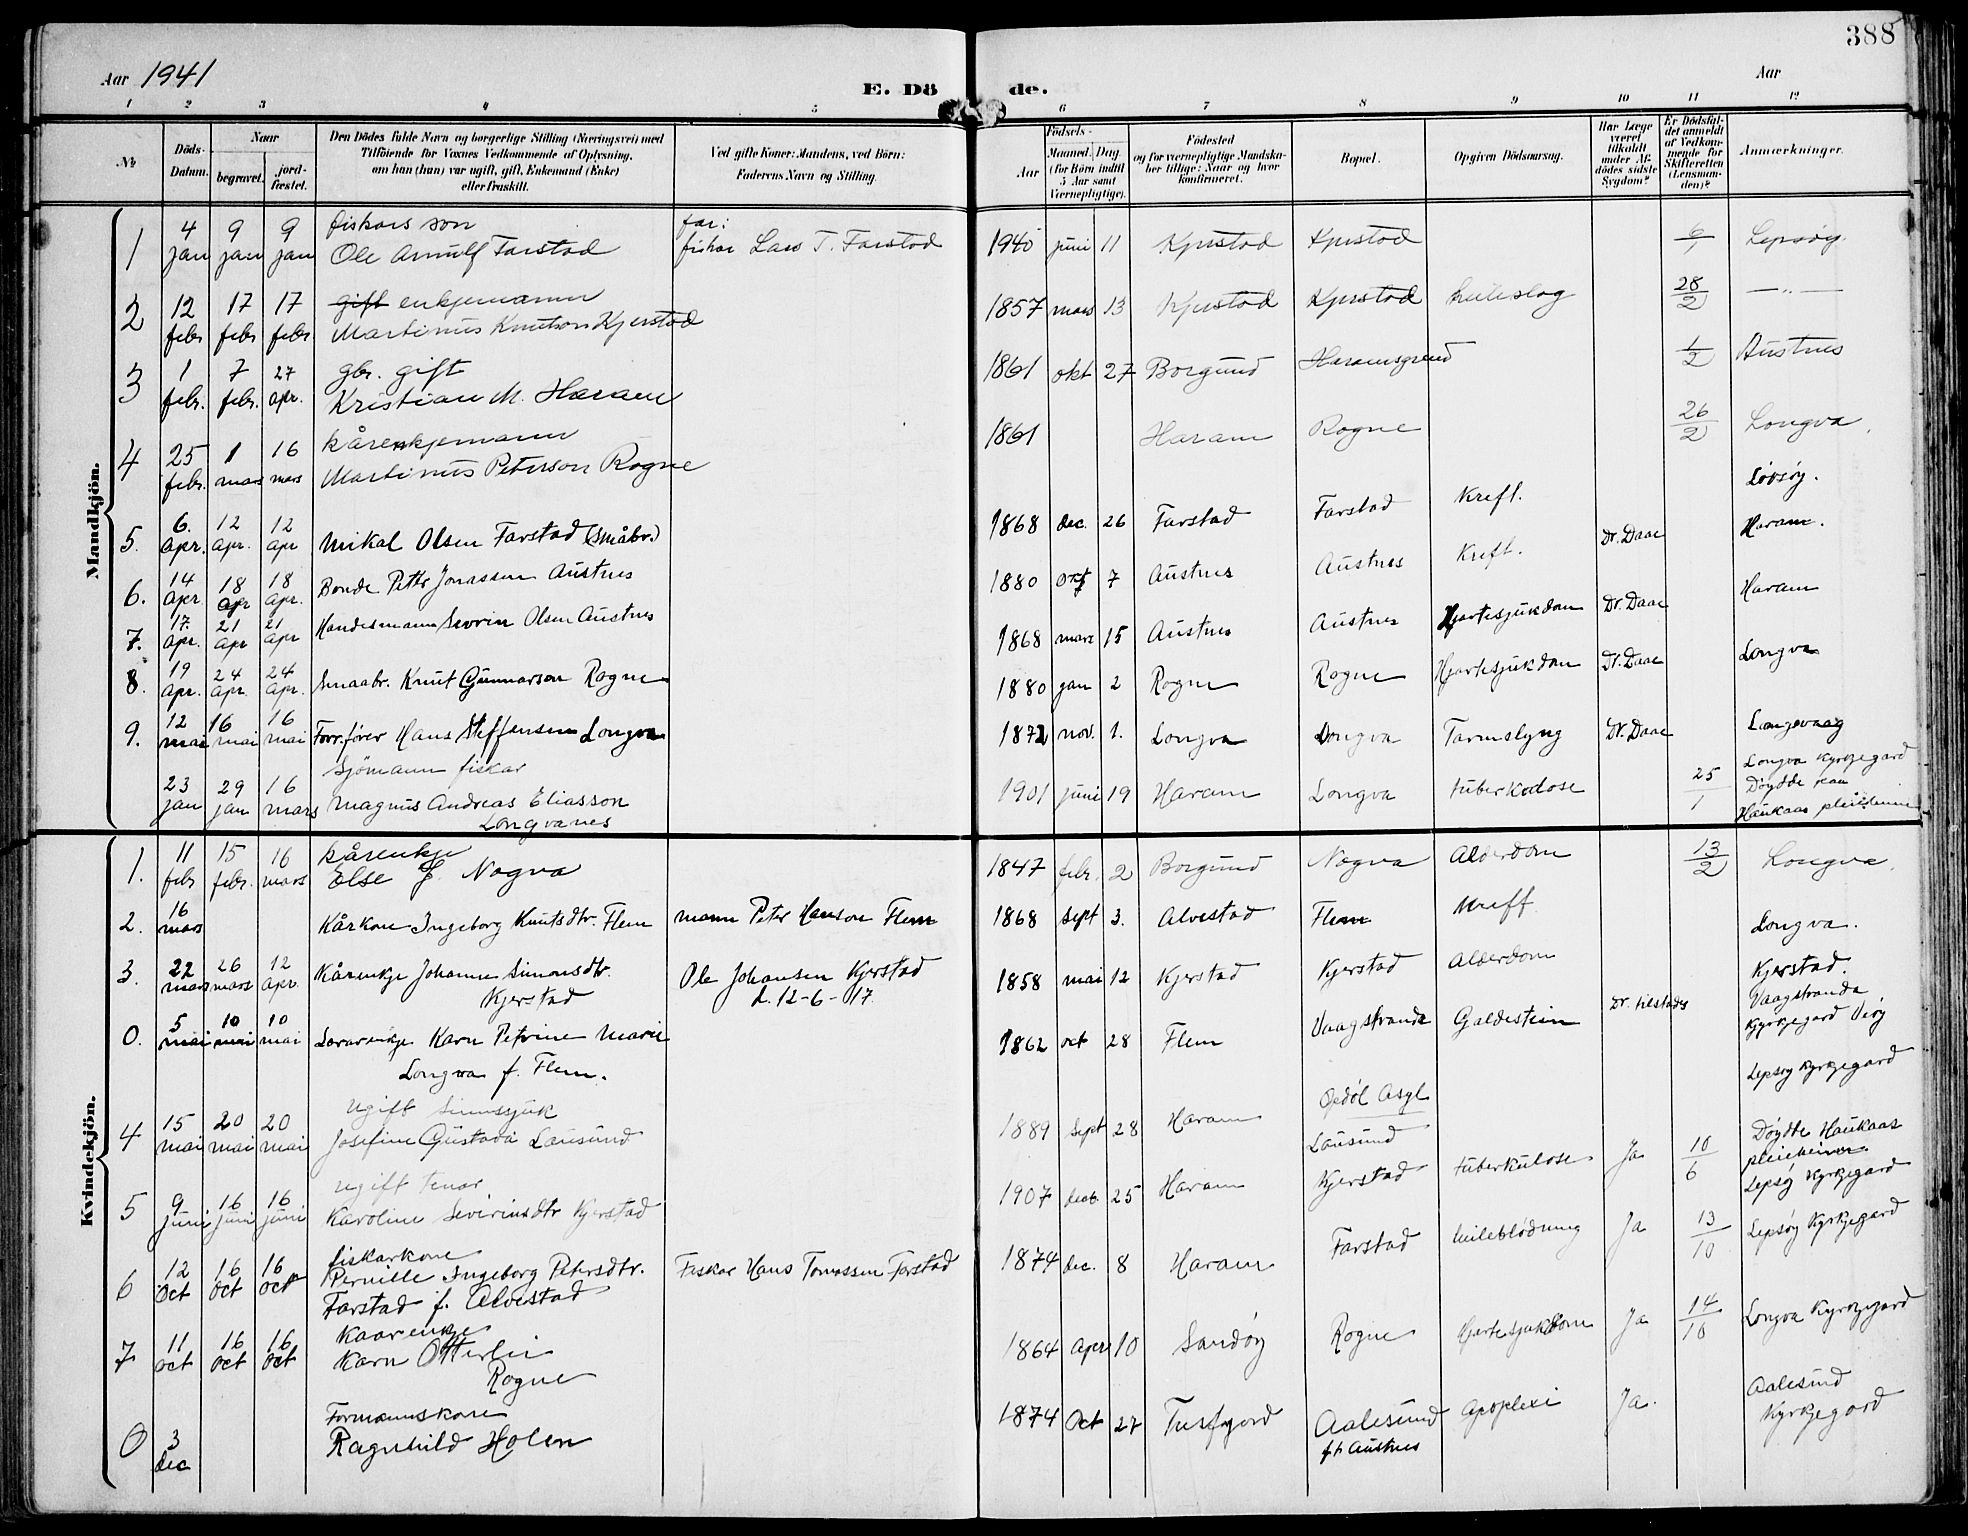 388
Aar 1941
Aar
E. Dö de.
1 2 3 4 5 6 7 8 9 10 11 12
No
Döds-Datum.
Naar
begravet.
jord-fæstet.
Den Dödes fulde Navn og borgerlige Stilling (Næringsvei) med
Tilföiende for Voxnes Vedkommende af Oplysning,
om han (hun) var ugift, gift, Enkemand (Enke)
eller fraskilt.
Ved gifte Koner: Mandens, ved Börn:
Faderens Navn og Stilling.
Födsels-
Aar
Maaned. Dag
(for Börn indtil
5 Aar samt
Værnepligtige).
Födested
og for værnepligtige Mandska-
ber tillige: Naar og hvor
konfirmeret.
Bopæl.
Opgiven Dödsaarsag.
Har Læge
været
tilkaldt
under Af-
dödes sidste
Sygdom?
Er Dödsfal-
det anmeldt
af Vedkom-
mende for
Skifteretten
(Lensman-
den)?
Anmærkninger.
Mandkjön.
1 4 jan 9 jan 9 jan fiskars son
Ole Arnulf Farstad far: fiskar Lars T. Farstad 1940 juni 11 Kjerstad Kjerstad 6/1 Lepsøy
2 12 febr 17 febr 17 febr gift enkjemann
Martinus Knutson Kjerstad 1857 mars 13 Kjerstad Kjerstad heileslag 28/2 —„—
3 1 febr. 7 febr. 27 apr. gbr. gift
Kristian M. Haram 1861 okt 27 Borgund Haramsgrend 1/2 Austnes
4 25 febr. 1 mars 16 mars kårenkjemann
Martinus Peterson Rogne 1861 Haram Rogne 26/2 Longva
5. 6. apr. 12 apr. 12 apr Mikal Olsen Farstad (småbr.) 1868 dec. 26 Farstad Farstad Kreft. Løvsøy.
6. 14 apr. 18 apr 18 apr. Bonde Petter Jonassen Austnes 1880 7 Austnes Austnes Kreft. Dr. Daae Haram.
7. 17. apr. 21 apr 21 apr Handesmann Severin Olsen Austnes 1868 mars 15 Austnes Austnes Hjartesjukdom Dr. Daae Haram
8. 19 apr. 24 apr. 24 apr. Smaabr. Knut Gunnarson Rogne 1880 jan 2 Rogne Rogne Hjartesjukdom Dr. Daae Longva
9. 12 mai 16 mai 16 mai Forr.fører Hans Steffensen Longva 1872 nov. 1. Longva Longva Tarmslyng Dr. Daae Langevaag
23 jan 29 jan 16 mars Sjømann fiskar
Magnus Andreas Eliasson
Longvanes 1901 juni 19 Haram Longva tuberkolose 25/1 Longva Kyrkjegard
Døydde paa
Haukaas pleieheim
Kvindekjön.
1. 11 febr 15 febr. 16 mars kårenkje
Else J. Nogva 1847 febr. 2 Borgund Nogva Alderdom 13/2 Longva
2. 16 mars Kårkone Ingeborg Knutsdtr. Flem mann Peter Hanson Flem 1868 sept 3. Alvestad Flem Kreff Longva.
3. 22 mars 26 mars 12 apr. Kårenkje Johanne Simonsdtr.
Kjerstad Ole Johansen Kjerstad
d. 12-6-17. 1858 mai 12 Kjerstad Kjerstad Alderdom Kjerstad.
0. 5 mai 10 mai 10 mai Lærarenkje Karn Petrine Marie
Longva f. Flem. 1862 oct 28 Flem Vaagstranda Galdestein Vaagstranda
Kyrkjegard
4 15 mai 20 mai 20 mai Ugift Sinnssjuk
Josefine Gustava Lausund 1889 sept 28 Haram Opdøl Asyl
Lausund Lepsøy Kyrkjegard
5 9 juni 16 juni 16 juni Ugift tenar
Karoline Severinsdtr Kjerstad 1907 25 Haram Kjerstad tuberkulose Ja 10/6 Døydde Haukaas
pleieheimen
Lepsøy Kyrkjegard
6 12 Oct 16 Oct 16 Oct fiskarkone
Pernille Ingeborg Petersdtr.
Farstad f. Alvestad Fiskar Hans Tomassen Farstad 1874 dec. 8 Haram Farstad heileblødning Ja 13/10 Lepsøy Kyrkjegard
7 11 oct 16 oct 16 oct Kaarenkje
Karn Otterlei
Rogne 1864 Apr 10 Sandøy Rogne Hjartesjukdom Ja 14/10 Longva Kyrkjegard
0 3 dec Formannskone
Ragnhild Holen 1874 Oct 27 Aalesund
f.h. Austnes Apoplexi Ja. Aalesund
Kyrkjegard